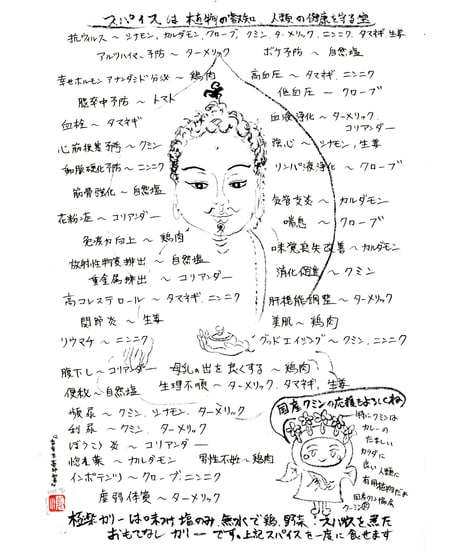 スパイスは植物の叡知、人類の健康を守る宝
抗ウィルス～シナモン、カルダモン、クローブ、クミン、ターメリック、ニンニク、タマネギ、生姜
アルツハイマー、予防～ターメリック　ボケ予防～自然塩
幸せホルモンアナンダミド分泌～鶏肉　高血圧～タマネギ、ニンニク
脳卒中予防～トマト　低血圧～クローブ
血栓～タマネギ　血液浄化～ターメリック、コリアンダー
心筋梗塞予防～クミン　強心～シナモン、生姜
動脈硬化予防～ニンニク　リンパ液浄化～クローブ
筋骨強化～自然塩
気管支炎～カルダモン
花粉症～コリアンダー　喘息～クローブ
免疫力向上～鶏肉　味覚喪失改善～カルダモン
放射性物質排出～自然塩
重金属排出～コリアンダー　消化促進～クミン
高コレステロール～タマネギ、ニンニク　肝機能調整～ターメリック
関節炎～生姜　美肌～鶏肉
リウマチ～ニンニク　グッドエイジング～クミン、ニンニク
腹下し～コリアンダー　母乳の出を良くする～鶏肉
便秘～自然塩　生理不順～ターメリック、タマネギ、生姜
頻尿～クミン、シナモン、ターメリック
利尿～クミン、ターメリック
ぼうこう炎～コリアンダー
惚産薬～カルダモン　男性不妊～鶏肉
インポテンツ～クローブ、ニンニク
虚弱体質～ターメリック
国産クミンの応援もよろしくね
特にクミンは
カレーの
たましい
カラダに
良い人類に
有用植物だよ
国産クミン協会
クーミン
極楽カリーは味付け塩のみ無水で鶏、野菜、スパイスを煮た
おもてなしカリーです。上記スパイスを一度に食せます